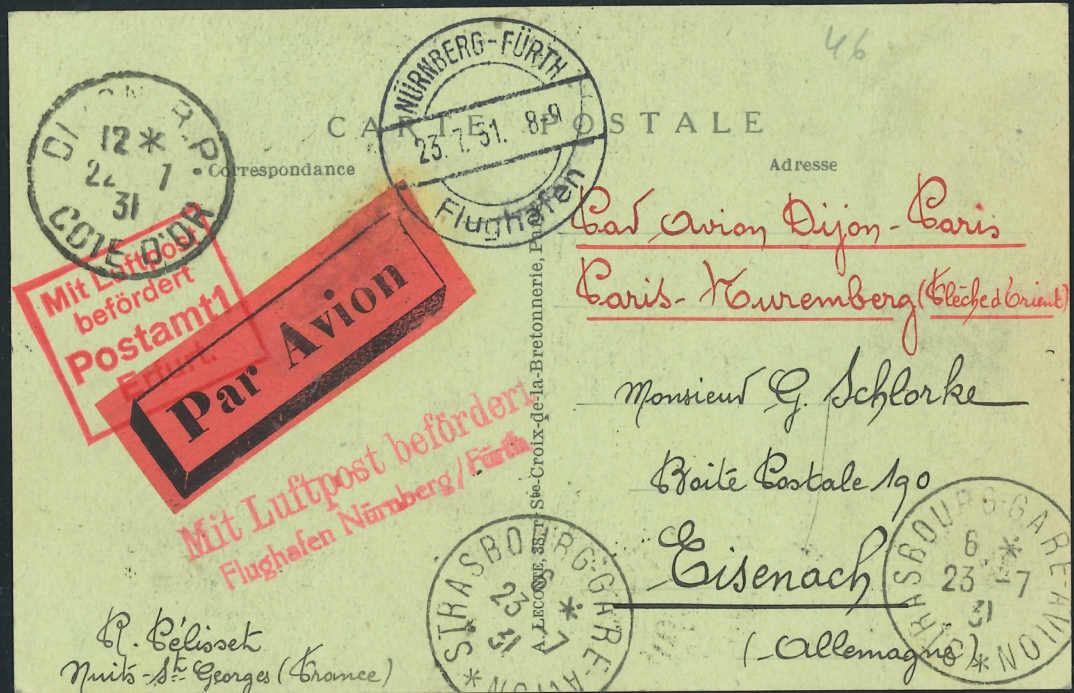 46
CARTE POSTALE
Correspondance
Adresse
DIJON R.P.
12 *
22 7
31
COTE D'OR
NÜRNBERG-FÜRTH
23.7.31. 8-9
Flughafen
Mit Luftpost
befördert
Postamt1
Erfurt.
Par Avion
Mit Luftpost befördert
Flughafen Nürnberg/Fürth
A. LECONTE, 38, r. Ste-Croix-de-la-Bretonnerie,
Par Avion Dijon-Paris
Paris-Nuremberg (Flèche d'Orient)
Monsieur G. Schlorke
Boite Postale 190
Eisenach
(Allemagne)
R. Pélisset
Nuits-St-Georges (France)
STRASBOURG-GARE-AVION
6 *
23 -7
31
STRASBOURG-GARE-AVION
6 *
23 -7
31